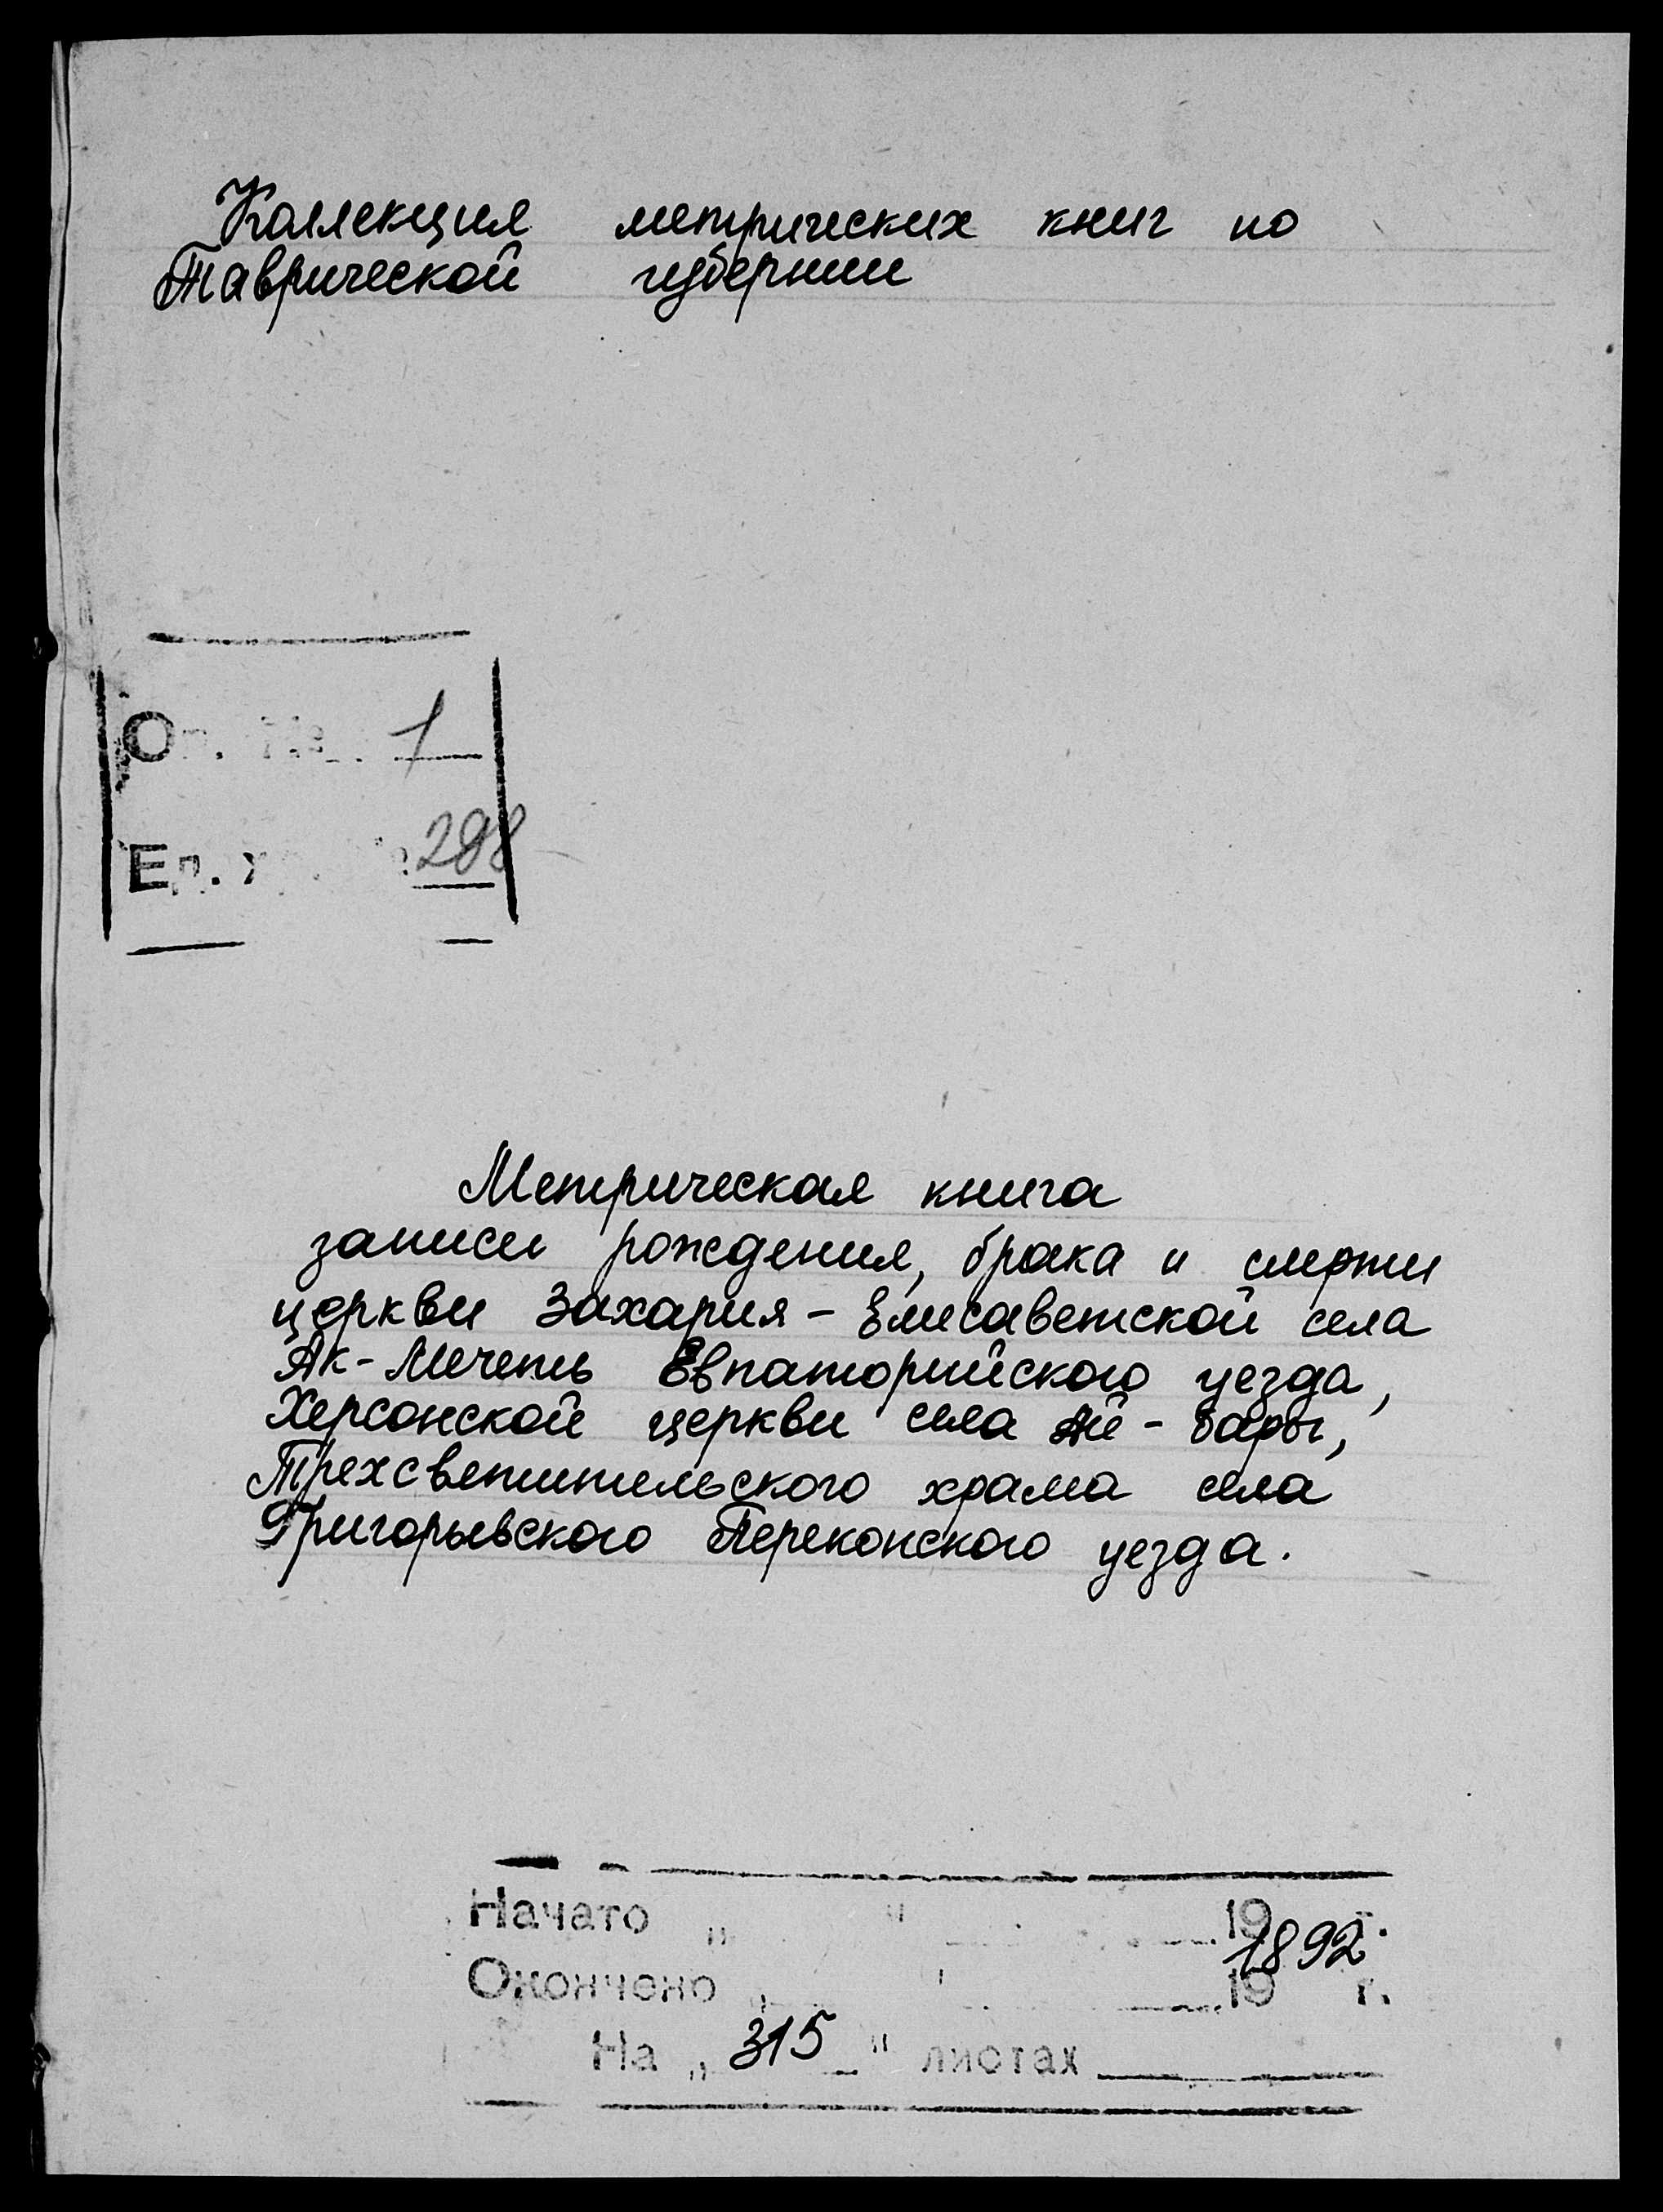 Коллекция метрических книг по
Таврической губернии
Оп. № 1
Ед. хр. № 298
Метрическая книга
записи рождения, брака и смерти
церкви Захария - Елисаветской села
Ак-Мечеть Евпаторийского уезда,
Херсонской церкви села Ай - Бары,
Трехсветительского храма села
Григорьевского Перекопского уезда.
Начато „ " 19 г.
1892
Окончено „ " 19 г.
На „ 315 " листах